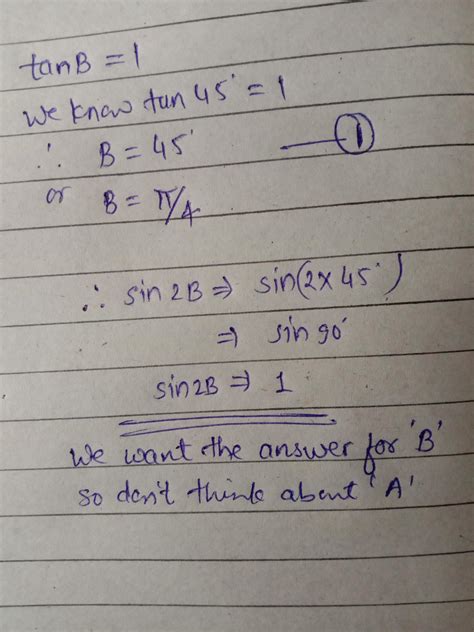 tanB = 1
We know tan 45° = 1
∴ B = 45° ——①
or B = π/4
∴ sin 2B ⇒ sin(2×45°)
⇒ sin 90°
sin2B ⇒ 1
We want the answer for 'B'
so don't think about 'A'